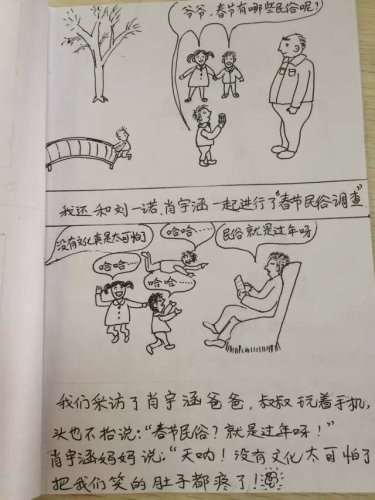 爷爷,春节有哪些民俗呢?
我还和刘一诺、肖宇涵一起进行了“春节民俗调查”
没有文化真是太可怕了
哈哈……
哈哈……
哈哈……
民俗就是过年呀
我们采访了肖宇涵爸爸,叔叔玩着手机,
头也不抬说:“春节民俗?就是过年呀!”
肖宇涵妈妈说:“天呐!没有文化太可怕了
把我们笑的肚子都疼了!